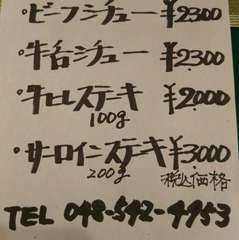 ・ビーフシチュー ¥2300
・牛タンシチュー ¥2300
・牛ヒレステーキ ¥2000
100g
・サーロインステーキ ¥3000
200g 税込価格
TEL 048-542-4953